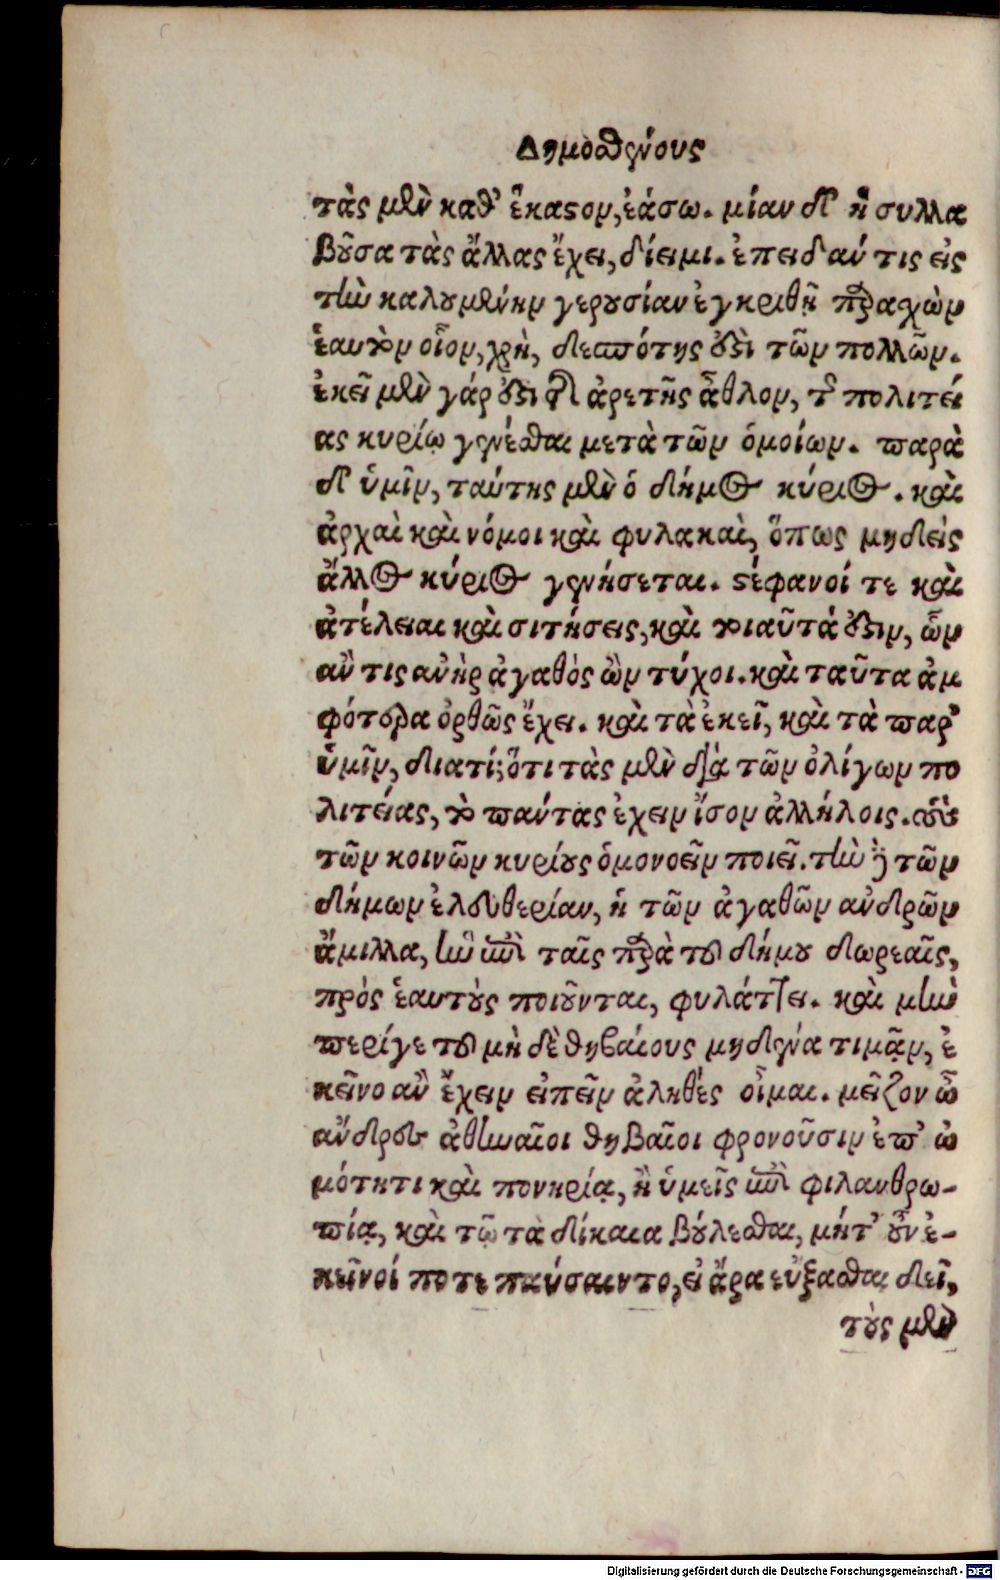 Δημοσθένους
τὰς μὲν καθ' ἕκαστον, ἐάσω. μίαν δ' ἣ συλλα
βοῦσα τὰς ἄλλας ἔχει, δίειμι. ἐπειδάν τις εἰς
τὴν καλουμένην γερουσίαν ἐγκριθῇ παρασχὼν
ἑαυτὸν οἷον, χρὴ, δεσπότης ἐστὶ τῶν πολλῶν.
ἐκεῖ μὲν γάρ ἐστι τῆς ἀρετῆς ἆθλον, τῆς πολιτεί
ας κυρίῳ γενέσθαι μετὰ τῶν ὁμοίων. παρὰ
δ' ὑμῖν, ταύτης μὲν ὁ δῆμος κύριος. καὶ
ἀρχαὶ καὶ νόμοι καὶ φυλακαὶ, ὅπως μηδεὶς
ἄλλος κύριος γενήσεται. στέφανοί τε καὶ
ἀτέλειαι καὶ σιτήσεις, καὶ τοιαῦτά ἐστιν, ὧν
ἄν τις ἀνὴρ ἀγαθὸς ὢν τύχοι. καὶ ταῦτα ἀμ
φότερα ὀρθῶς ἔχει. καὶ τὰ ἐκεῖ, καὶ τὰ παρ'
ὑμῖν, διατί; ὅτι τὰς μὲν διὰ τῶν ὀλίγων πο
λιτείας, τὸ πάντας ἔχειν ἴσον ἀλλήλοις. τοὺς
τῶν κοινῶν κυρίους ὁμονοεῖν ποιεῖ. τὴν δὲ τῶν
δήμων ἐλευθερίαν, ἡ τῶν ἀγαθῶν ἀνδρῶν
ἅμιλλα, ἣν ἐπὶ ταῖς παρὰ τοῦ δήμου δωρεαῖς,
πρὸς ἑαυτοὺς ποιοῦνται, φυλάττει. καὶ μὴν
περίγε τοῦ μὴ δὲ θηβαίους μηδένα τιμᾷν, ἐ
κεῖνο ἂν ἔχειν εἰπεῖν ἀληθὲς οἶμαι. μεῖζον ὦ
ἄνδρες ἀθηναῖοι θηβαῖοι φρονοῦσιν ἐπ' ὠ
μότητι καὶ πονηρίᾳ, ἢ ὑμεῖς ἐπὶ φιλανθρω-
πίᾳ, καὶ τῷ τὰ δίκαια βούλεσθαι, μήτ' οὖν ἐ-
κεῖνοί ποτε παύσαιντο, εἰ ἄρα εὔξασθαι δεῖ,
τοὺς μὲν
Digitalisierung gefördert durch die Deutsche Forschungsgemeinschaft - DFG